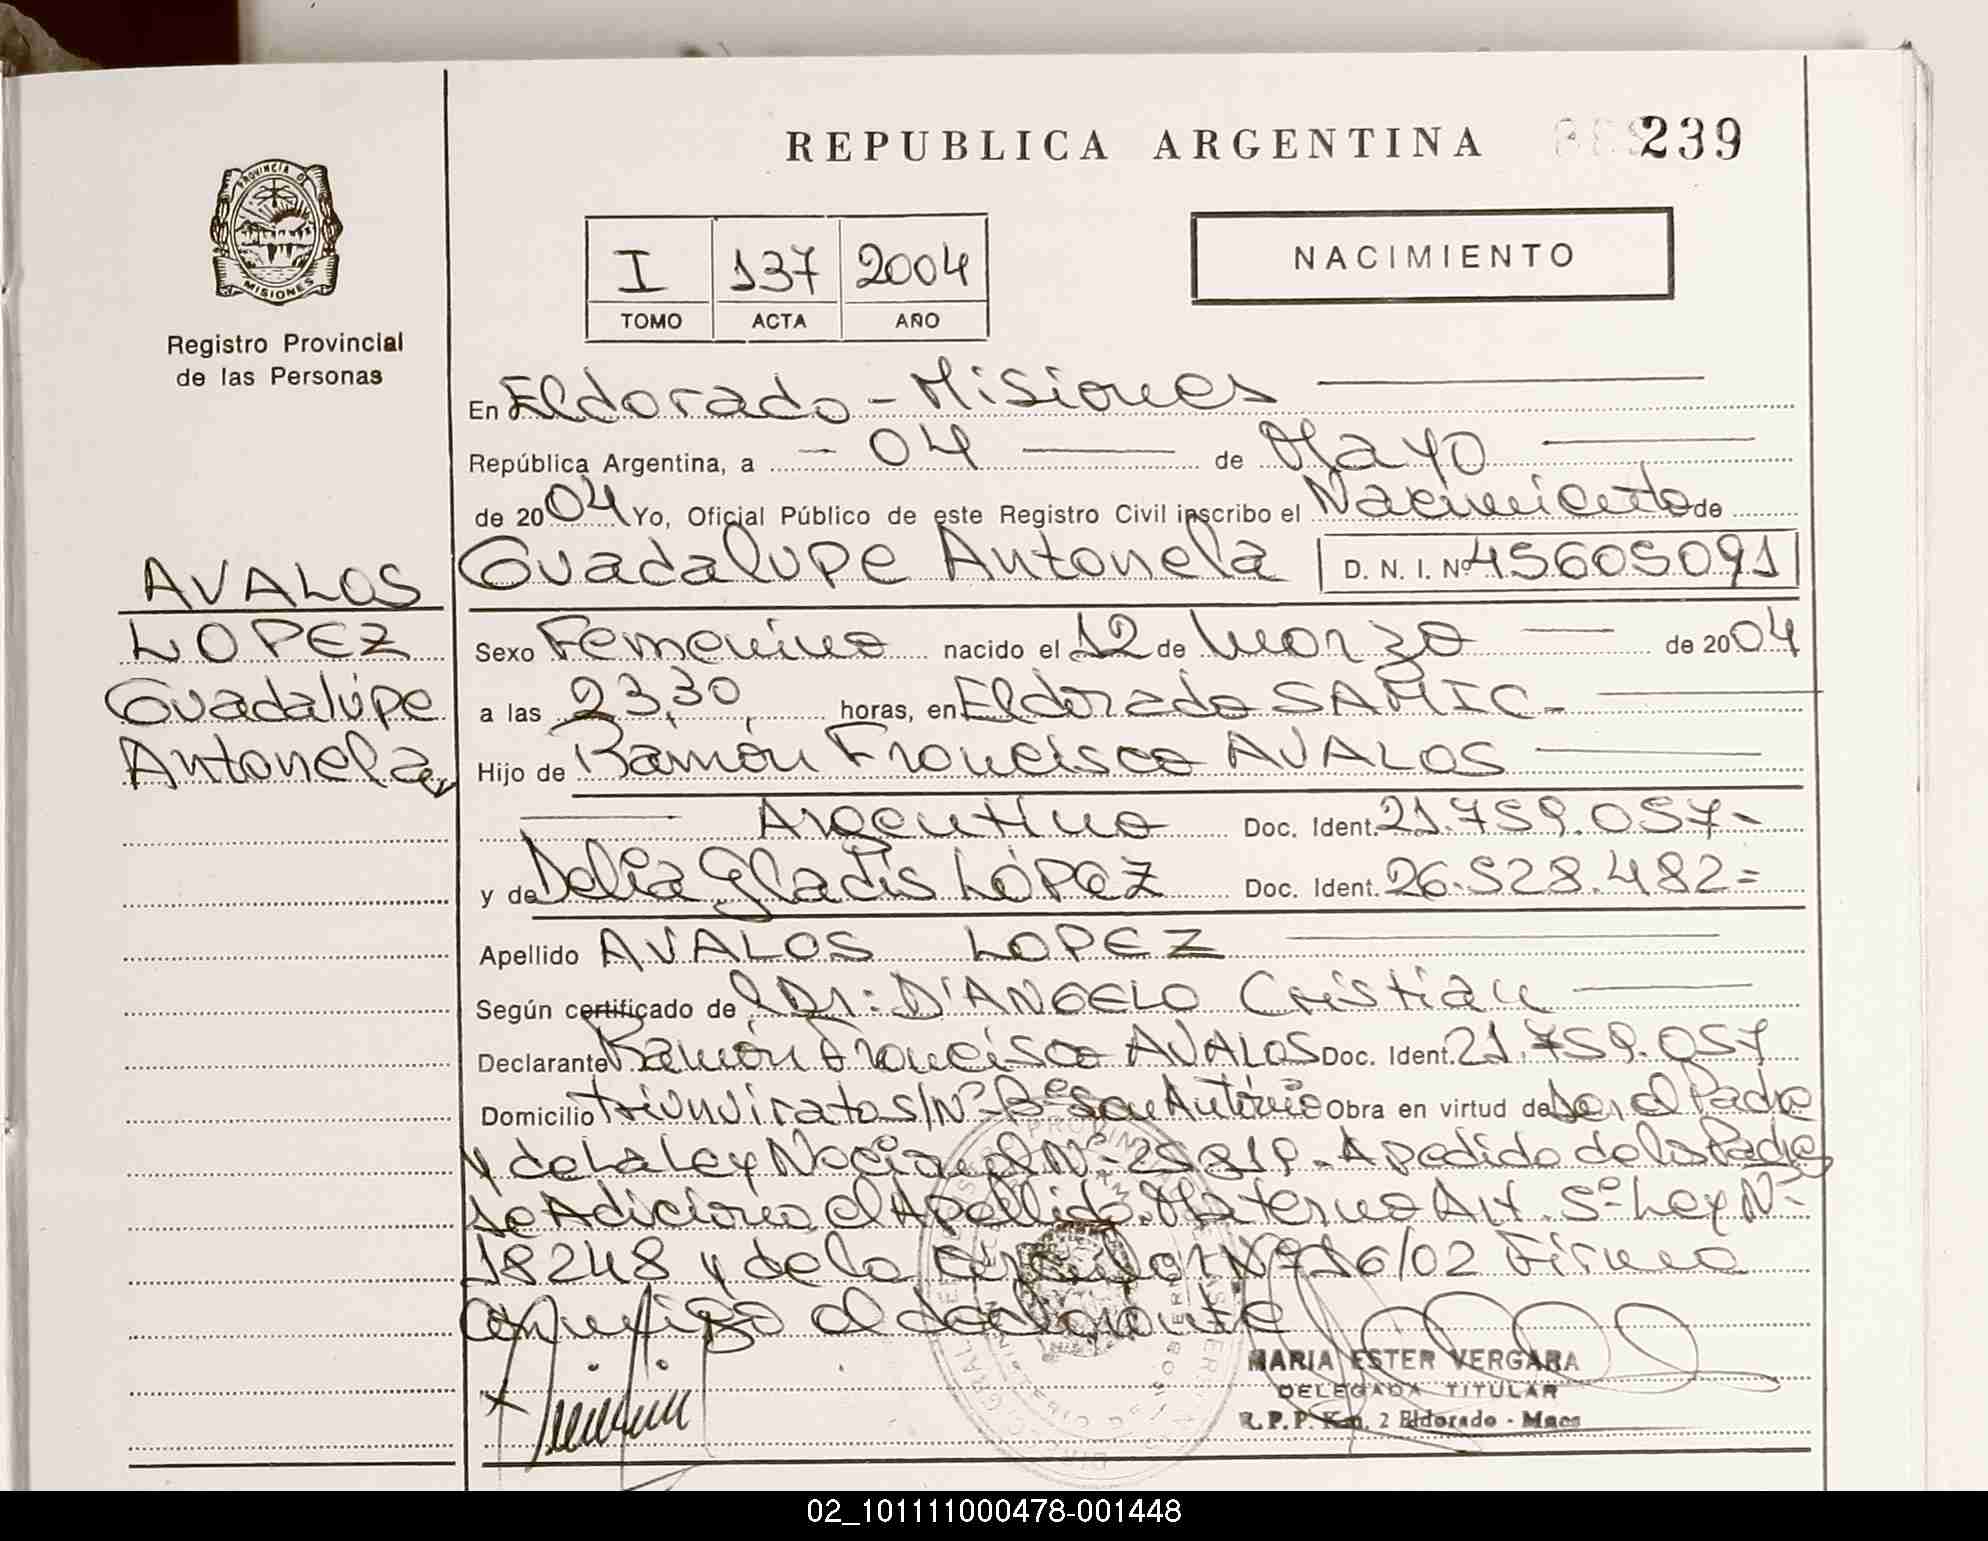 REPUBLICA ARGENTINA
239
PROVINCIA DE
MISIONES
Registro Provincial
de las Personas
I 137 2004
TOMO ACTA AÑO
NACIMIENTO
En Eldorado - Misiones
República Argentina, a - 04 de Mayo
de 2004 Yo, Oficial Público de este Registro Civil inscribo el Nacimiento de
Guadalupe Antonela D. N. I. Nº 45605091
AVALOS
LOPEZ
Guadalupe
Antonela
Sexo Femenino nacido el 12 de Marzo de 2004
a las 23,30 horas, en Eldorado SAMIC-
Hijo de Ramón Francisco AVALOS
Argentino Doc. Ident. 21.759.057-
y de Delia Gladis LÓPEZ Doc. Ident. 26.528.482=
Apellido AVALOS LOPEZ
Según certificado de Dr: D'ANGELO Cristian
Declarante Ramón Francisco AVALOS Doc. Ident. 21.759.057
Domicilio triunvirato S/Nº Bº San Antonio Obra en virtud de Ser el Padre
y de La Ley Nacional Nº 25819. A pedido de los Padres
se Adiciona el Apellido Materno Art. 5º Ley Nº
18248 y de la Circular Nº 16/02 Firma
conmigo el declarante
MARIA ESTER VERGARA
DELEGADA TITULAR
R.P.P. Km. 2 Eldorado - Mnes
02_101111000478-001448